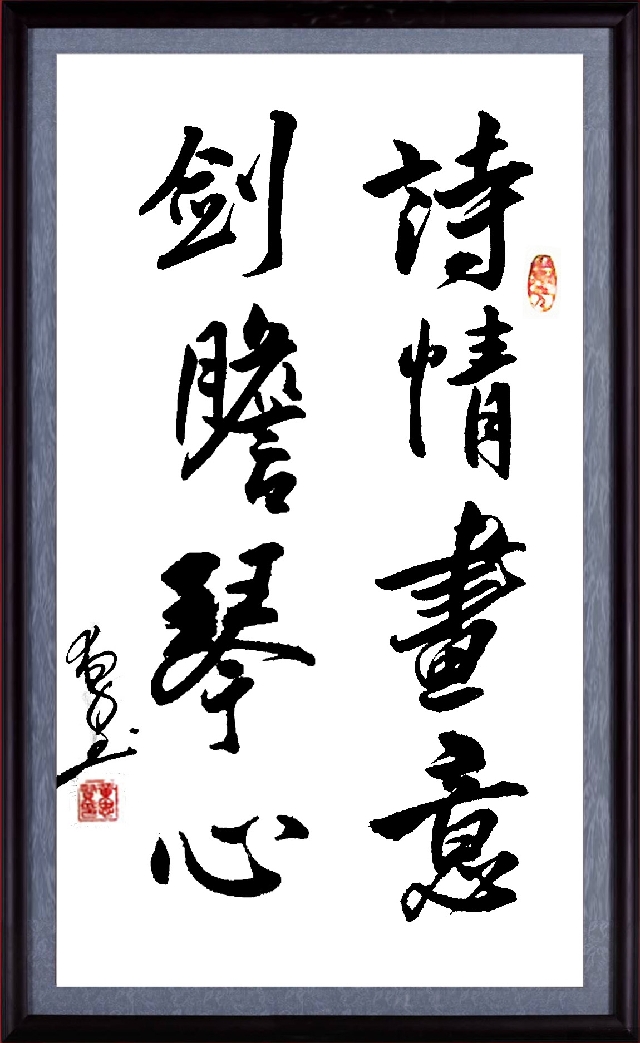 詩情畫意
剑膽琴心